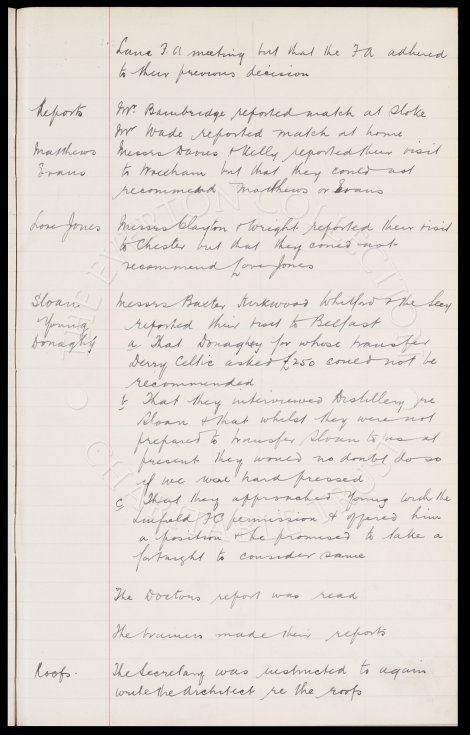 Lanc F.A meeting but that the F A adhered
to their previous decision
Reports Mr. Bainbridge reported match at Stoke
Mr Wade reported match at home
Matthews Messrs Davies & Kelly reported their visit
Evans to Wrexham but that they could not
recommend Matthews or Evans
Love Jones Messrs Clayton & Wright reported their visit
to Chester but that they could not
recommend Love Jones
Sloan Messrs Baxter Kirkwood Whitford & the Secy
Young reported their visit to Belfast
Donaghy a That Donaghey for whose transfer
Derry Celtic asked £250 could not be
recommended
b That they interviewed Distillery re
Sloan & that whilst they were not
prepared to transfer Sloan to us at
present they would no doubt do so
if we were hard pressed
c That they approached Young with the
Linfield FC permission & offered him
a position & he promised to take a
fortnight to consider same
The Doctors report was read
The trainers made their reports
Roofs. The Secretary was instructed to again
write the Architect re the roofs
THE EVERTON COLLECTION